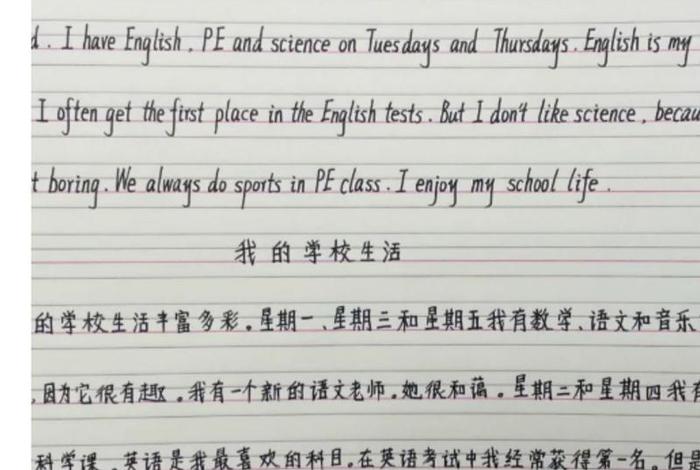 d. I have English, PE and science on Tuesdays and Thursdays. English is my
I often get the first place in the English tests. But I don't like science, becau
t boring. We always do sports in PE class. I enjoy my school life.
我的学校生活
的学校生活丰富多彩。星期一、星期三和星期五我有数学、语文和音乐
,因为它很有趣。我有一个新的语文老师。她很和蔼。星期二和星期四我有
科学课。英语是我最喜欢的科目。在英语考试中我经常获得第一名。但